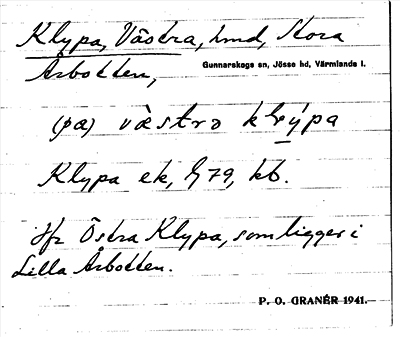 Klypa, Västra, hmd, Stora
Årbotten, Gunnarskogs sn, Jösse hd, Värmlands l.
(pa) västra klýpa
Klypa ek, G 79, kb.
Jfr Östra Klypa, som ligger i
Lilla Årbotten.
P. O. GRANÉR 1941.